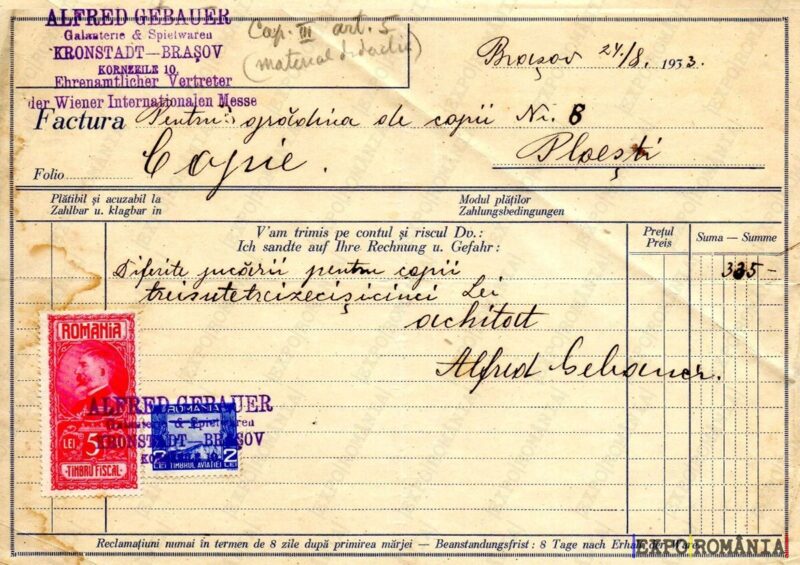 ALFRED GEBAUER
Galanterie & Spielwaren
KRONSTADT—BRAȘOV
KORNZEILE 10.
Ehrenamtlicher Vertreter
der Wiener Internationalen Messe
Cap. III art. 5
(material didactic)
Brașov 24/8. 1933.
Factura Pentru grădina de copii Nr. 8
Folio Copie. Ploești
Plătibil și acuzabil la
Zahlbar u. klagbar in
Modul plăților
Zahlungsbedingungen
V'am trimis pe contul și riscul Dv.:
Ich sandte auf Ihre Rechnung u. Gefahr:
Prețul
Preis
Suma — Summe
Diferite jucării pentru copii 335-
treisutetreizecișicinci Lei
achitat
Alfred Gebauer.
ROMANIA
LEI 5
TIMBRU FISCAL
ROMANIA
2 LEI TIMBRUL AVIAȚIEI LEI 2
ALFRED GEBAUER
Galanterie & Spielwaren
KRONSTADT—BRAȘOV
KORNZEILE 10.
Reclamațiuni numai în termen de 8 zile după primirea mărjei — Beanstandungsfrist: 8 Tage nach Erhalt der Ware
EXPOROMÂNIA